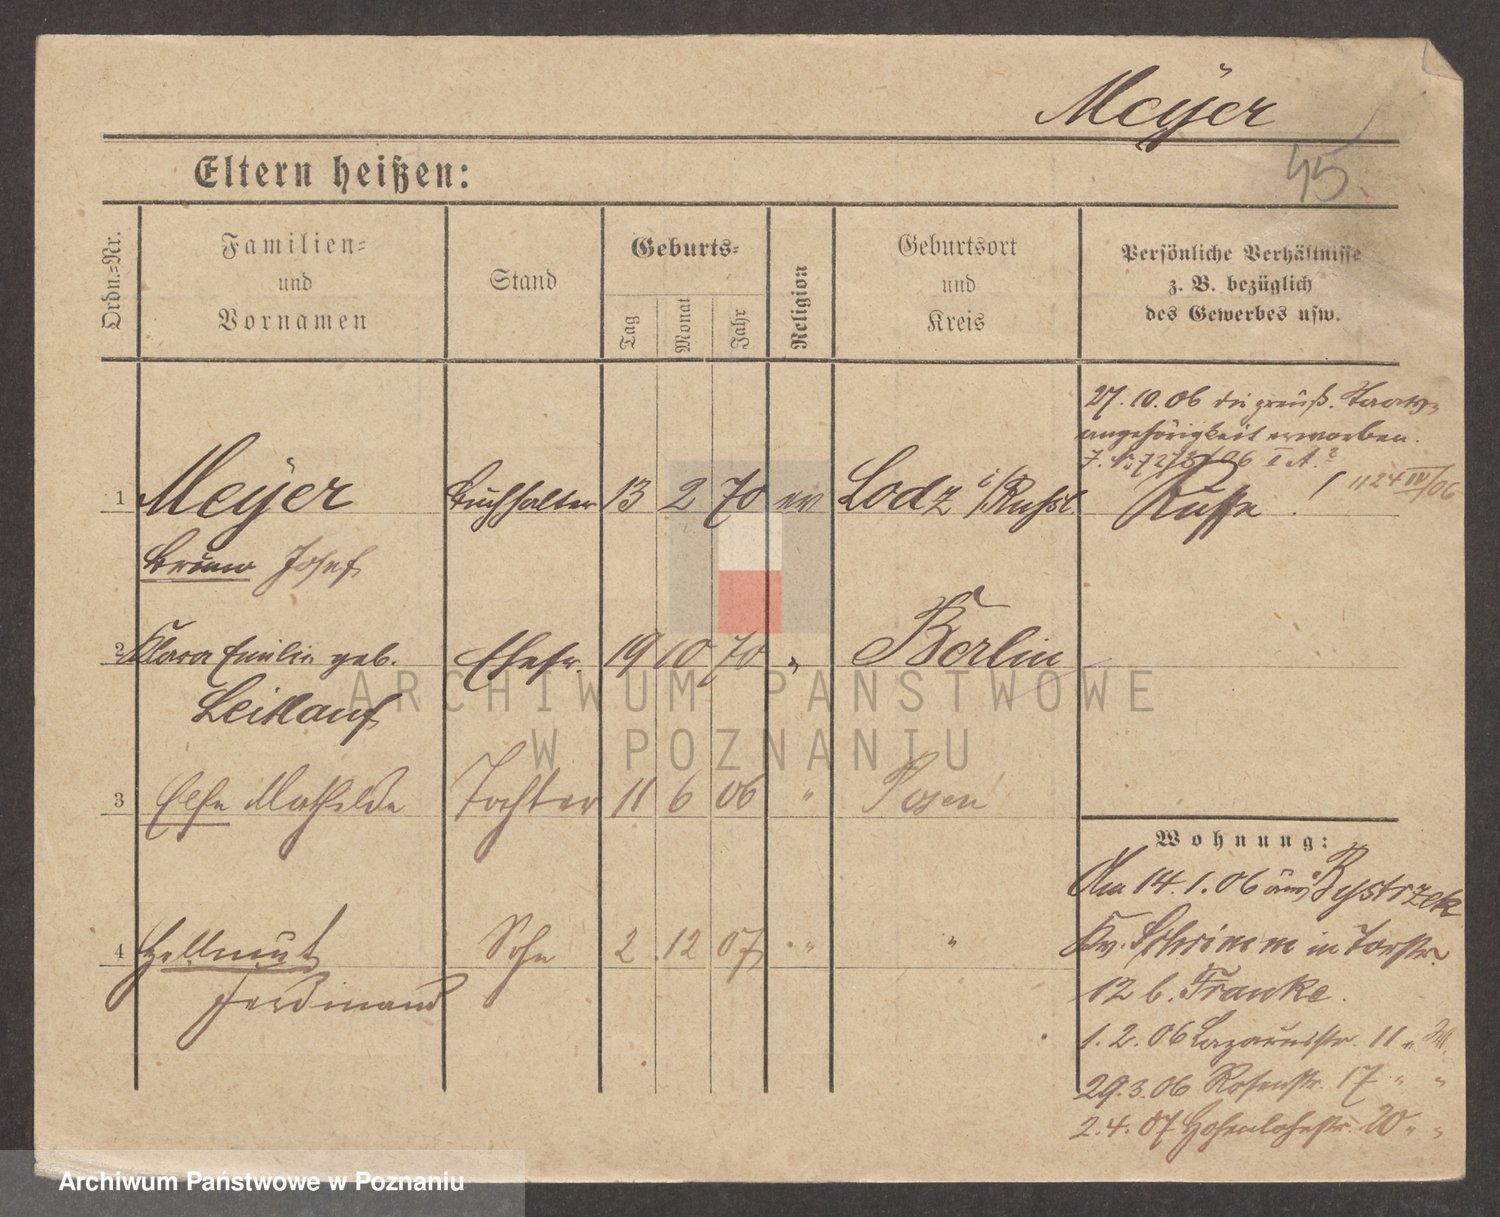 Meÿer
45.
Eltern heißen:
Ordn.-Nr.
Familien-
und
Vornamen
Stand
Geburts-
Tag
Monat
Jahr
Religion
Geburtsort
und
Kreis
Persönliche Verhältnisse
z. B. bezüglich
des Gewerbes usw.
27.10.06 die preuß. Staats-
angehörigkeit erworben.
1 Meÿer Buchhalter 13 2 70 ev Lodz i/Rußl. Russe 1124 IV/06
Bruno Josef
2 Klara Emilie geb. Ehefr. 19 10 70 " Berlin
Leidlauf
3 Else Mathilde Tochter 11 6 06 " Posen
4 Hellmut Sohn 2 12 07 " "
Ferdinand
Wohnung:
Am 14.1.06 aus Bystrzek
Kr. Schrimm in Torstr.
12 b. Franke.
1.2.06 Lazarusstr. 11 "
29.3.06 Rosenstr. 17 " "
2.4.07 Hohenlohestr. 20 " "
ARCHIWUM PAŃSTWOWE
W POZNANIU
Archiwum Państwowe w Poznaniu